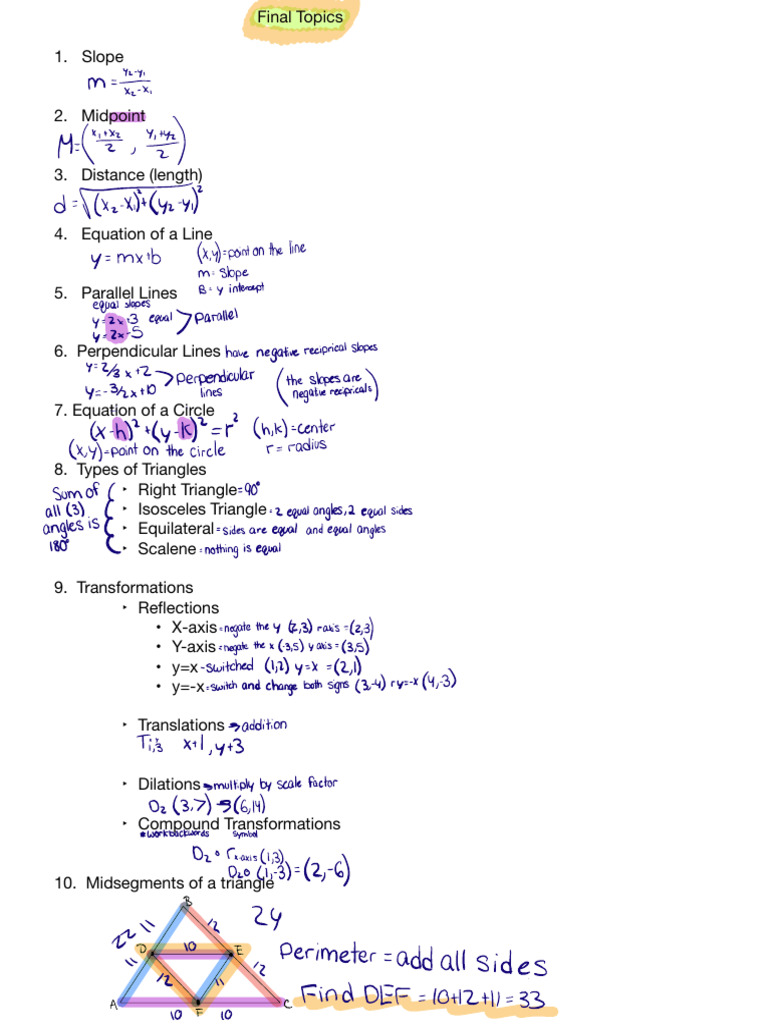 Final Topics
1. Slope
m = y₂-y₁ / x₂-x₁
2. Midpoint
M=(x₁+x₂/2 , y₁+y₂/2)
3. Distance (length)
d=√(x₂-x₁)²+(y₂-y₁)²
4. Equation of a Line
y=mx+b (x,y)=point on the line
m= slope
B= y intercept
5. Parallel Lines
equal slopes
y=2x+3 equal > Parallel
y=2x-5
6. Perpendicular Lines have negative reciprical slopes
y=2/3x+2 > Perpendicular lines (the slopes are negative recipricals)
y=-3/2x+10
7. Equation of a Circle
(x-h)²+(y-k)²=r² (h,k)=center
(x,y)=point on the circle r= radius
8. Types of Triangles
Sum of all (3) angles is 180°
‣ Right Triangle=90°
‣ Isosceles Triangle=2 equal angles,2 equal sides
‣ Equilateral=sides are equal and equal angles
‣ Scalene=nothing is equal
9. Transformations
‣ Reflections
• X-axis=negate the y (2,3) raxis=(2,3)
• Y-axis=negate the x (-3,5) y axis=(3,5)
• y=x-switched (1,2) y=x =(2,1)
• y=-x=switch and change both signs (3,-4) ry=-x(4,-3)
‣ Translations→addition
T1,3 x+1,y+3
‣ Dilations→multiply by scale factor
D₂ (3,7)→(6,14)
‣ Compound Transformations
*work backwords symbol
D₂∘rx-axis(1,3)
D₂∘(1,-3)=(2,-6)
10. Midsegments of a triangle
B
22 11 12 24
D 10 E
11 12 11 12
A F C
10 10
Perimeter=add all sides
Find DEF=10+12+11=33